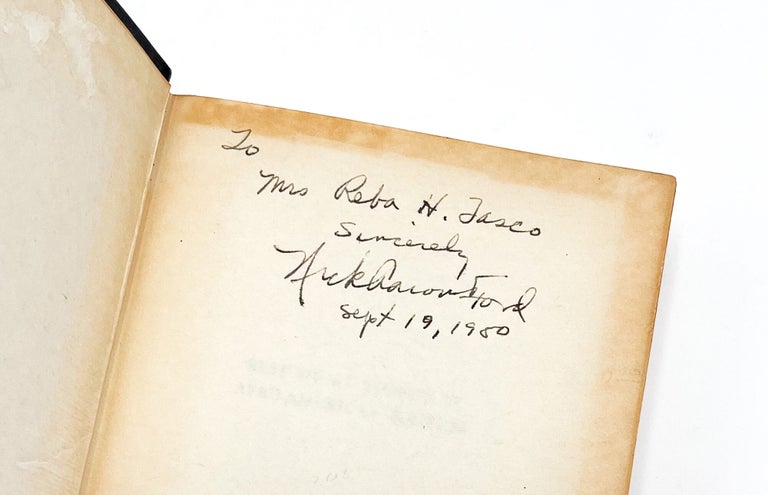 To
Mrs Reba H. Tasco
Sincerely
Nick Aaron Ford
Sept 19, 1980